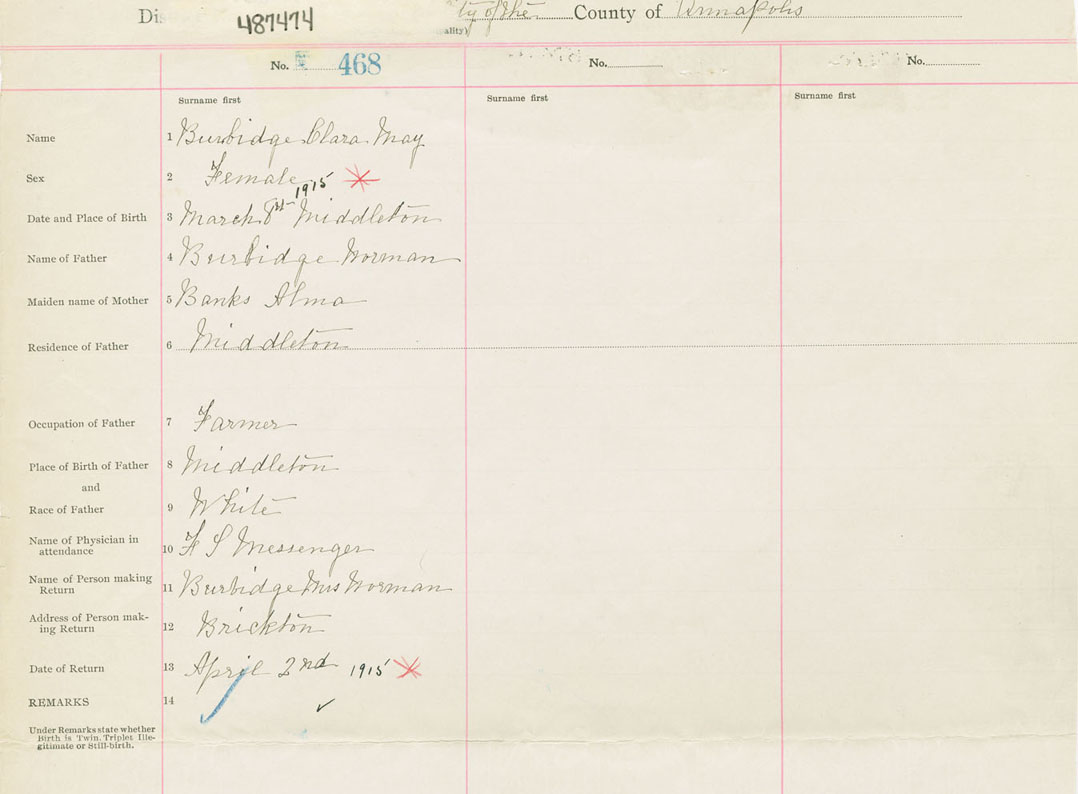 487474 ty of the County of Annapolis
ality)
No. 468 No. No.
Surname first Surname first Surname first
Name 1 Burbidge Clara May
Sex 2 Female
1915
Date and Place of Birth 3 March Middleton
Name of Father 4 Burbidge Norman
Maiden name of Mother 5 Banks Alma
Residence of Father 6 Middleton
Occupation of Father 7 Farmer
Place of Birth of Father 8 Middleton
and
Race of Father 9 White
Name of Physician in
attendance 10 Messenger
Name of Person making
Return 11 Burbidge Mrs Norman
Address of Person mak-
ing Return 12 Brickton
Date of Return 13 April 2nd 1915
REMARKS 14
Under Remarks state whether
Birth is Twin, Triplet Ille-
gitimate or Still-birth.